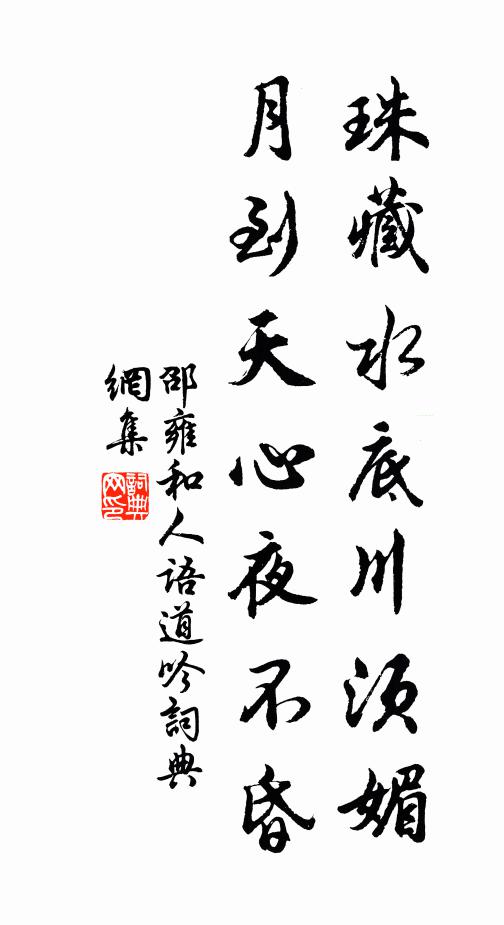 珠藏水底川須媚
月到天心夜不昏
邵雍和人語道吟詞典
網集
詞典
网印